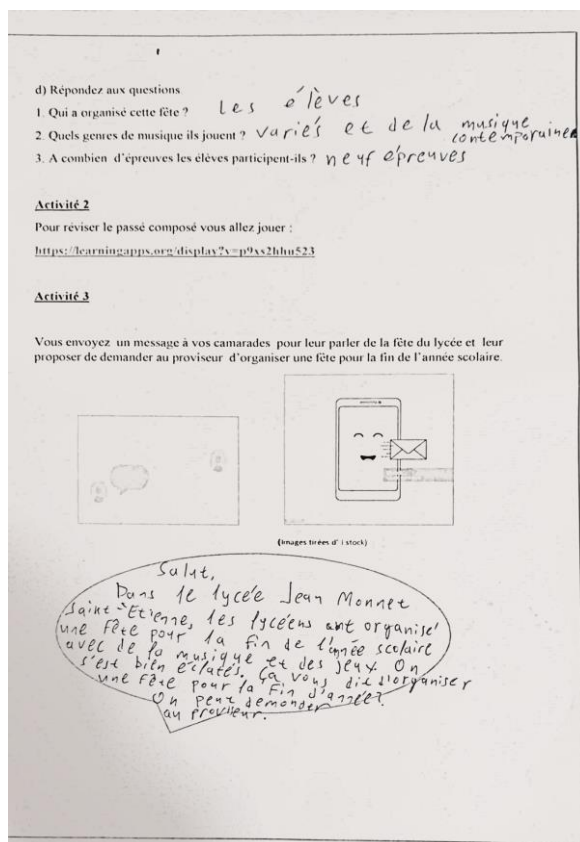 d) Répondez aux questions
1. Qui a organisé cette fête ? Les élèves
2. Quels genres de musique ils jouent ? variés et de la musique
contemporaine
3. A combien d'épreuves les élèves participent-ils ? neuf épreuves
Activité 2
Pour réviser le passé composé vous allez jouer :
https://learningapps.org/display?v=p9xs2hhu523
Activité 3
Vous envoyez un message à vos camarades pour leur parler de la fête du lycée et leur
proposer de demander au proviseur d'organiser une fête pour la fin de l'année scolaire.
(Images tirées d' i stock)
Salut,
Dans le lycée Jean Monnet
Saint-Etienne, les lycéens ont organisé
une fête pour la fin de l'année scolaire
avec de la musique et des jeux. On
s'est bien éclatés. Ça vous dit d'organiser
une fête pour la fin d'année?
On peut demander
au proviseur.